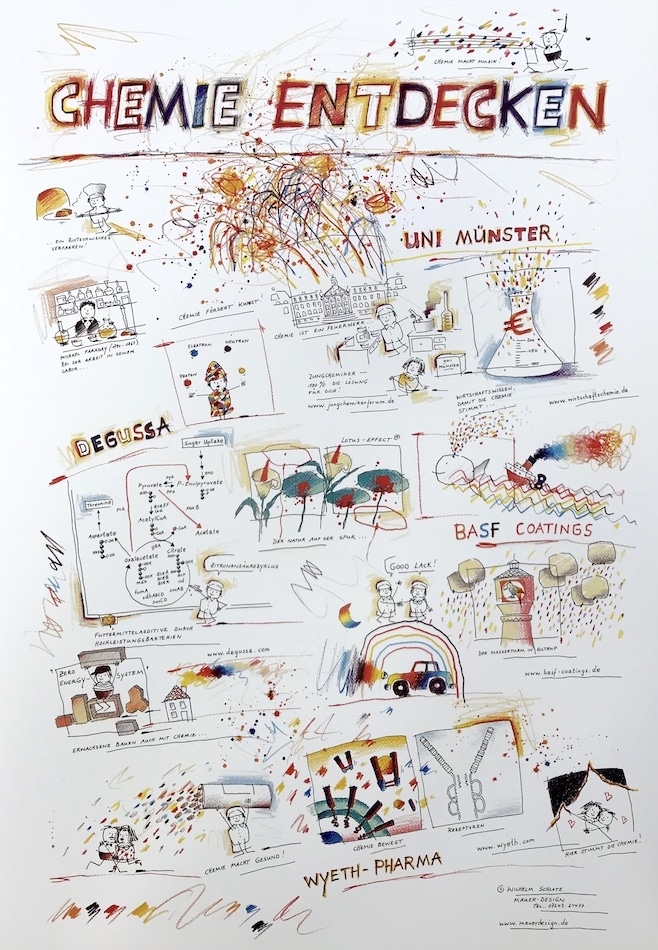 CHEMIE MACHT MUSIK!
CHEMIE ENTDECKEN
EIN BIOTECHNISCHES
VERFAHREN!
UNI MÜNSTER
CHEMIE FÖRDERT KUNST
MICHAEL FARADAY
BEI DER ARBEIT IN SEINEM
LABOR...
ELEKTRON
NEUTRON
PROTON
CHEMIE IST EIN FEUERWERK
JUNGCHEMIKER –
100% DIE LÖSUNG
FÜR DICH!
www.jungchemikerforum.de
UNI
MÜNSTER
€
WIRTSCHAFTSWISSEN,
DAMIT DIE CHEMIE
STIMMT...
www.wirtschaftschemie.de
DEGUSSA
Sugar Uptake
Pyruvate
P-Enolpyruvate
Threonine
AcetylCoA
Acetate
Aspartate
Oxalacetate
Citrate
ZITRONENSÄUREZYKLUS
FUTTERMITTELADDITIVE DURCH
HOCHLEISTUNGSBAKTERIEN
www.degussa.com
LOTUS-EFFECT®
DER NATUR AUF DER SPUR...
BASF COATINGS
GOOD LACK!
DER WASSERTURM IN HILTRUP
www.basf-coatings.de
ZERO
ENERGY-SYSTEM
ERWACHSENE BAUEN AUCH MIT CHEMIE...
CHEMIE MACHT GESUND!
CHEMIE BEWEGT
REZEPTUREN
www.wyeth.com
HIER STIMMT DIE CHEMIE!
WYETH-PHARMA
© WILHELM SCHLOTE
MAUER-DESIGN
www.mauerdesign.de